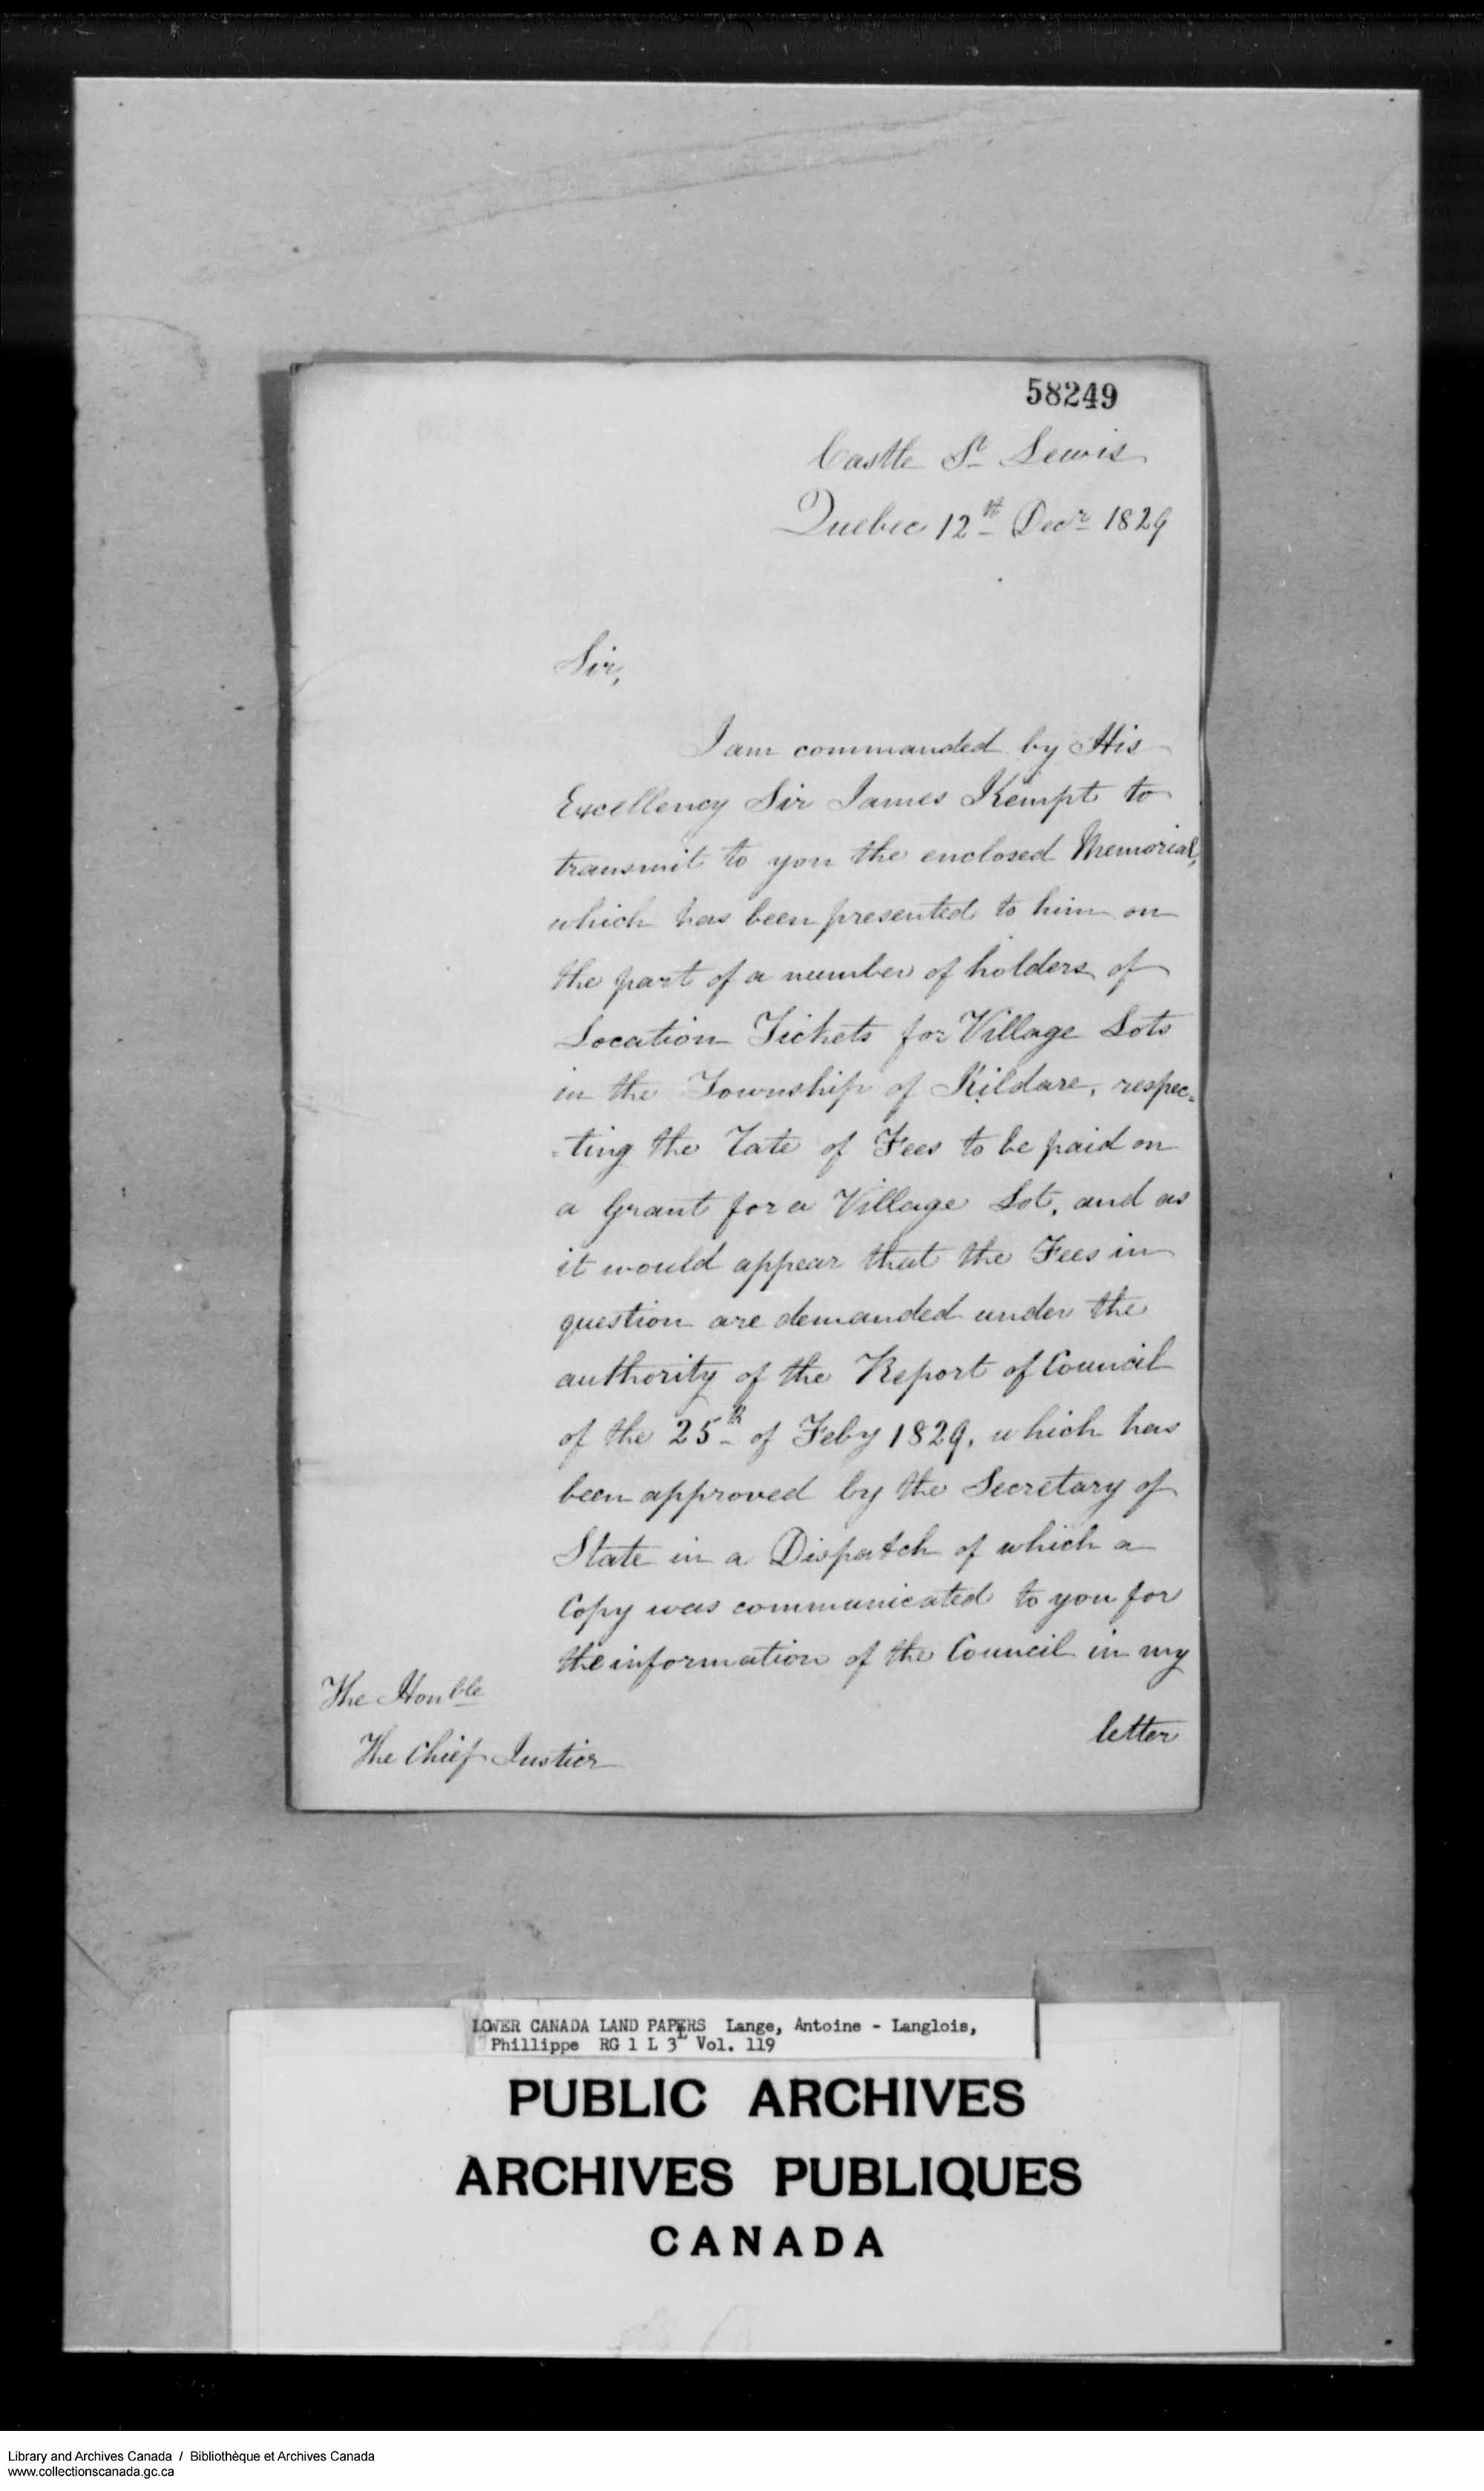 58249
Castle St Lewis
Quebec 12th Decr 1829
Sir,
I am commanded by His
Excellency Sir James Kempt to
transmit to you the enclosed Memorial,
which has been presented to him on
the part of a number of holders of
Location Tickets for Village Lots
in the Township of Kildare, respec=
=ting the Rate of Fees to be paid on
a Grant for a Village Lot, and as
it would appear that the Fees in
question are demanded under the
authority of the Report of Council
of the 25th of Feby 1829, which has
been approved by the Secretary of
State in a Dispatch of which a
Copy was communicated to you for
the information of the Council in my
letter
The Honble
The Chief Justice
LOWER CANADA LAND PAPERS Lange, Antoine - Langlois,
Phillippe RG 1 L 3L Vol. 119
PUBLIC ARCHIVES
ARCHIVES PUBLIQUES
CANADA
Library and Archives Canada / Bibliothèque et Archives Canada
www.collectionscanada.gc.ca